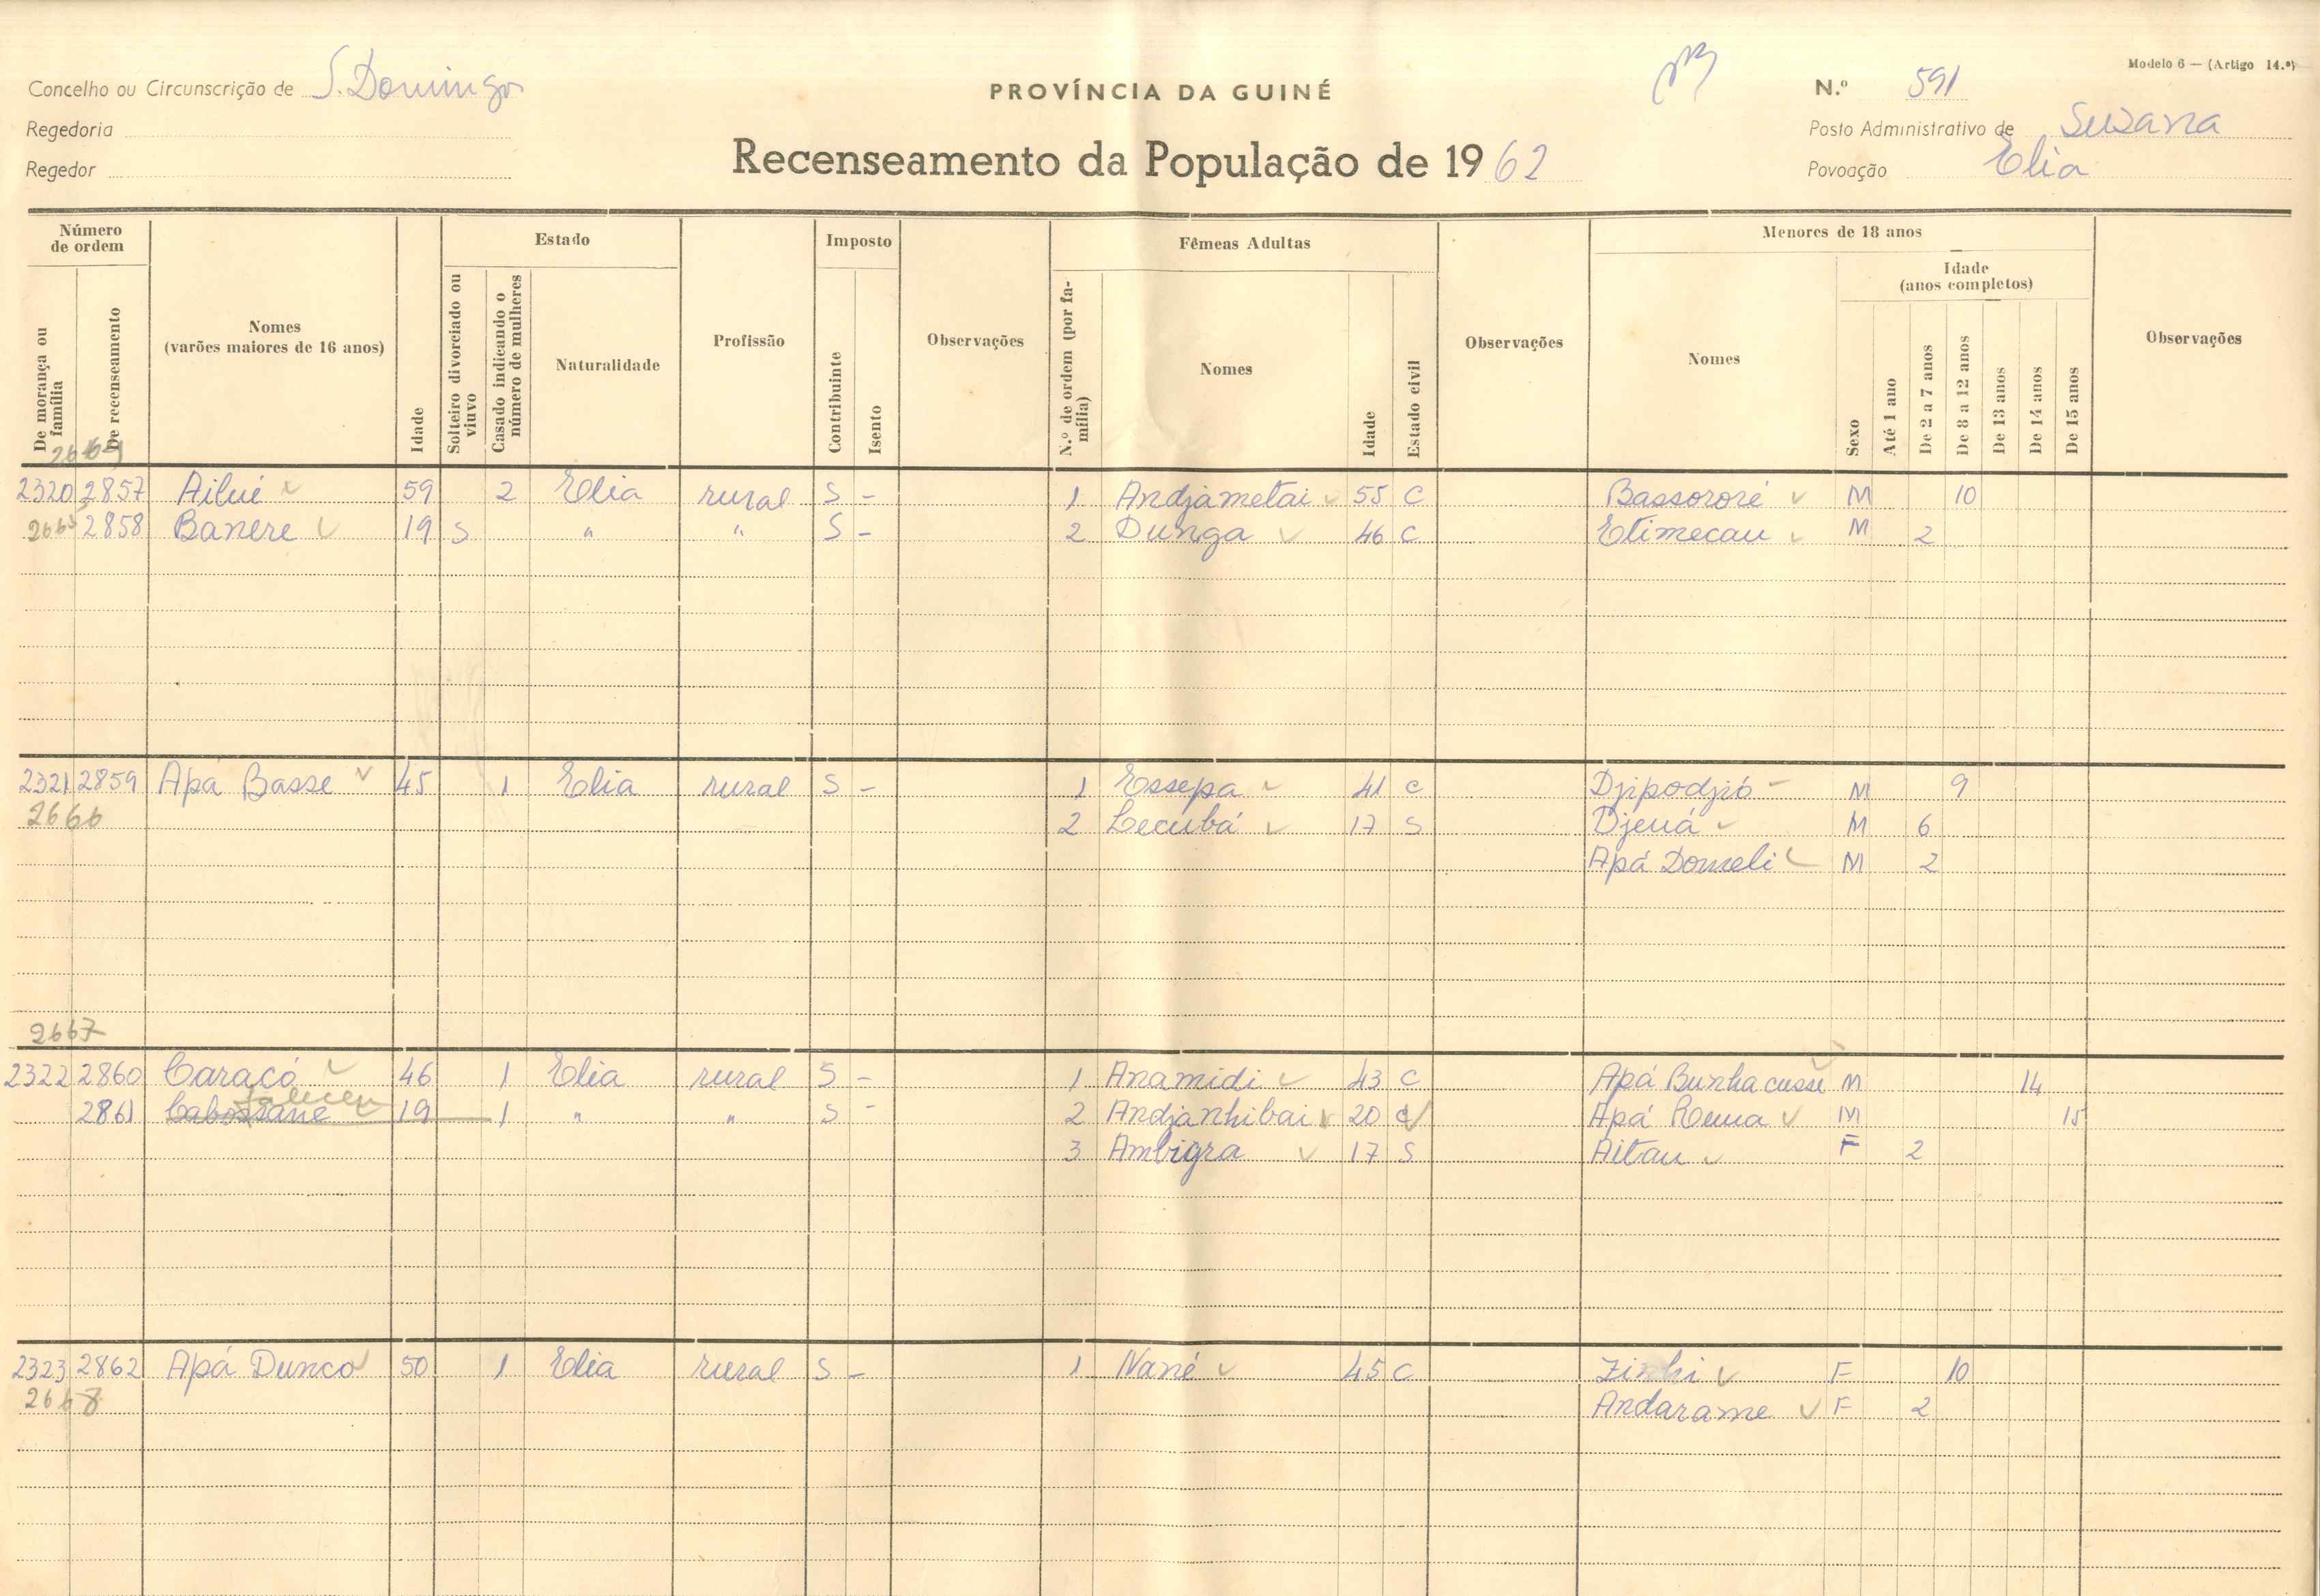 Modelo 6 — (Artigo 14.º)
Concelho ou Circunscrição de S. Domingos
PROVÍNCIA DA GUINÉ
N.º 591
Regedoria
Posto Administrativo de Suzana
Regedor
Recenseamento da População de 1962
Povoação Elia
Número de ordem
Estado
Imposto
Fêmeas Adultas
Menores de 18 anos
De morança ou família
De recenseamento
Nomes (varões maiores de 16 anos)
Idade
Solteiro divorciado ou viuvo
Casado indicando o número de mulheres
Naturalidade
Profissão
Contribuinte
Isento
Observações
N.º de ordem (por família)
Nomes
Idade
Estado civil
Observações
Nomes
Sexo
Idade (anos completos)
Até 1 ano
De 2 a 7 anos
De 8 a 12 anos
De 13 anos
De 14 anos
De 15 anos
Observações
2320 2857 Ailué 59 2 Elia rural S - 1 Andjametai 55 C Bassororé M 10
2665 2858 Banere 19 S " " S - 2 Dunga 46 C Etimecau M 2
2321 2859 Apá Basse 45 1 Elia rural S - 1 Essepa 41 C Djipodjió M 9
2666 2 Lecubá 17 S Djeuá M 6
Apá Domeli M 2
2667
2322 2860 Caracó 46 1 Elia rural S - 1 Anamidi 43 C Apá Bunhacusse M 14
2861 Cabossane 19 1 " " S - 2 Andjanhibai 20 C Apá Reuua M 15
3 Ambigra 17 S Aitau F 2
2323 2862 Apá Dunco 50 1 Elia rural S - 1 Nané 45 C Zinhi F 10
2668 Andarame F 2